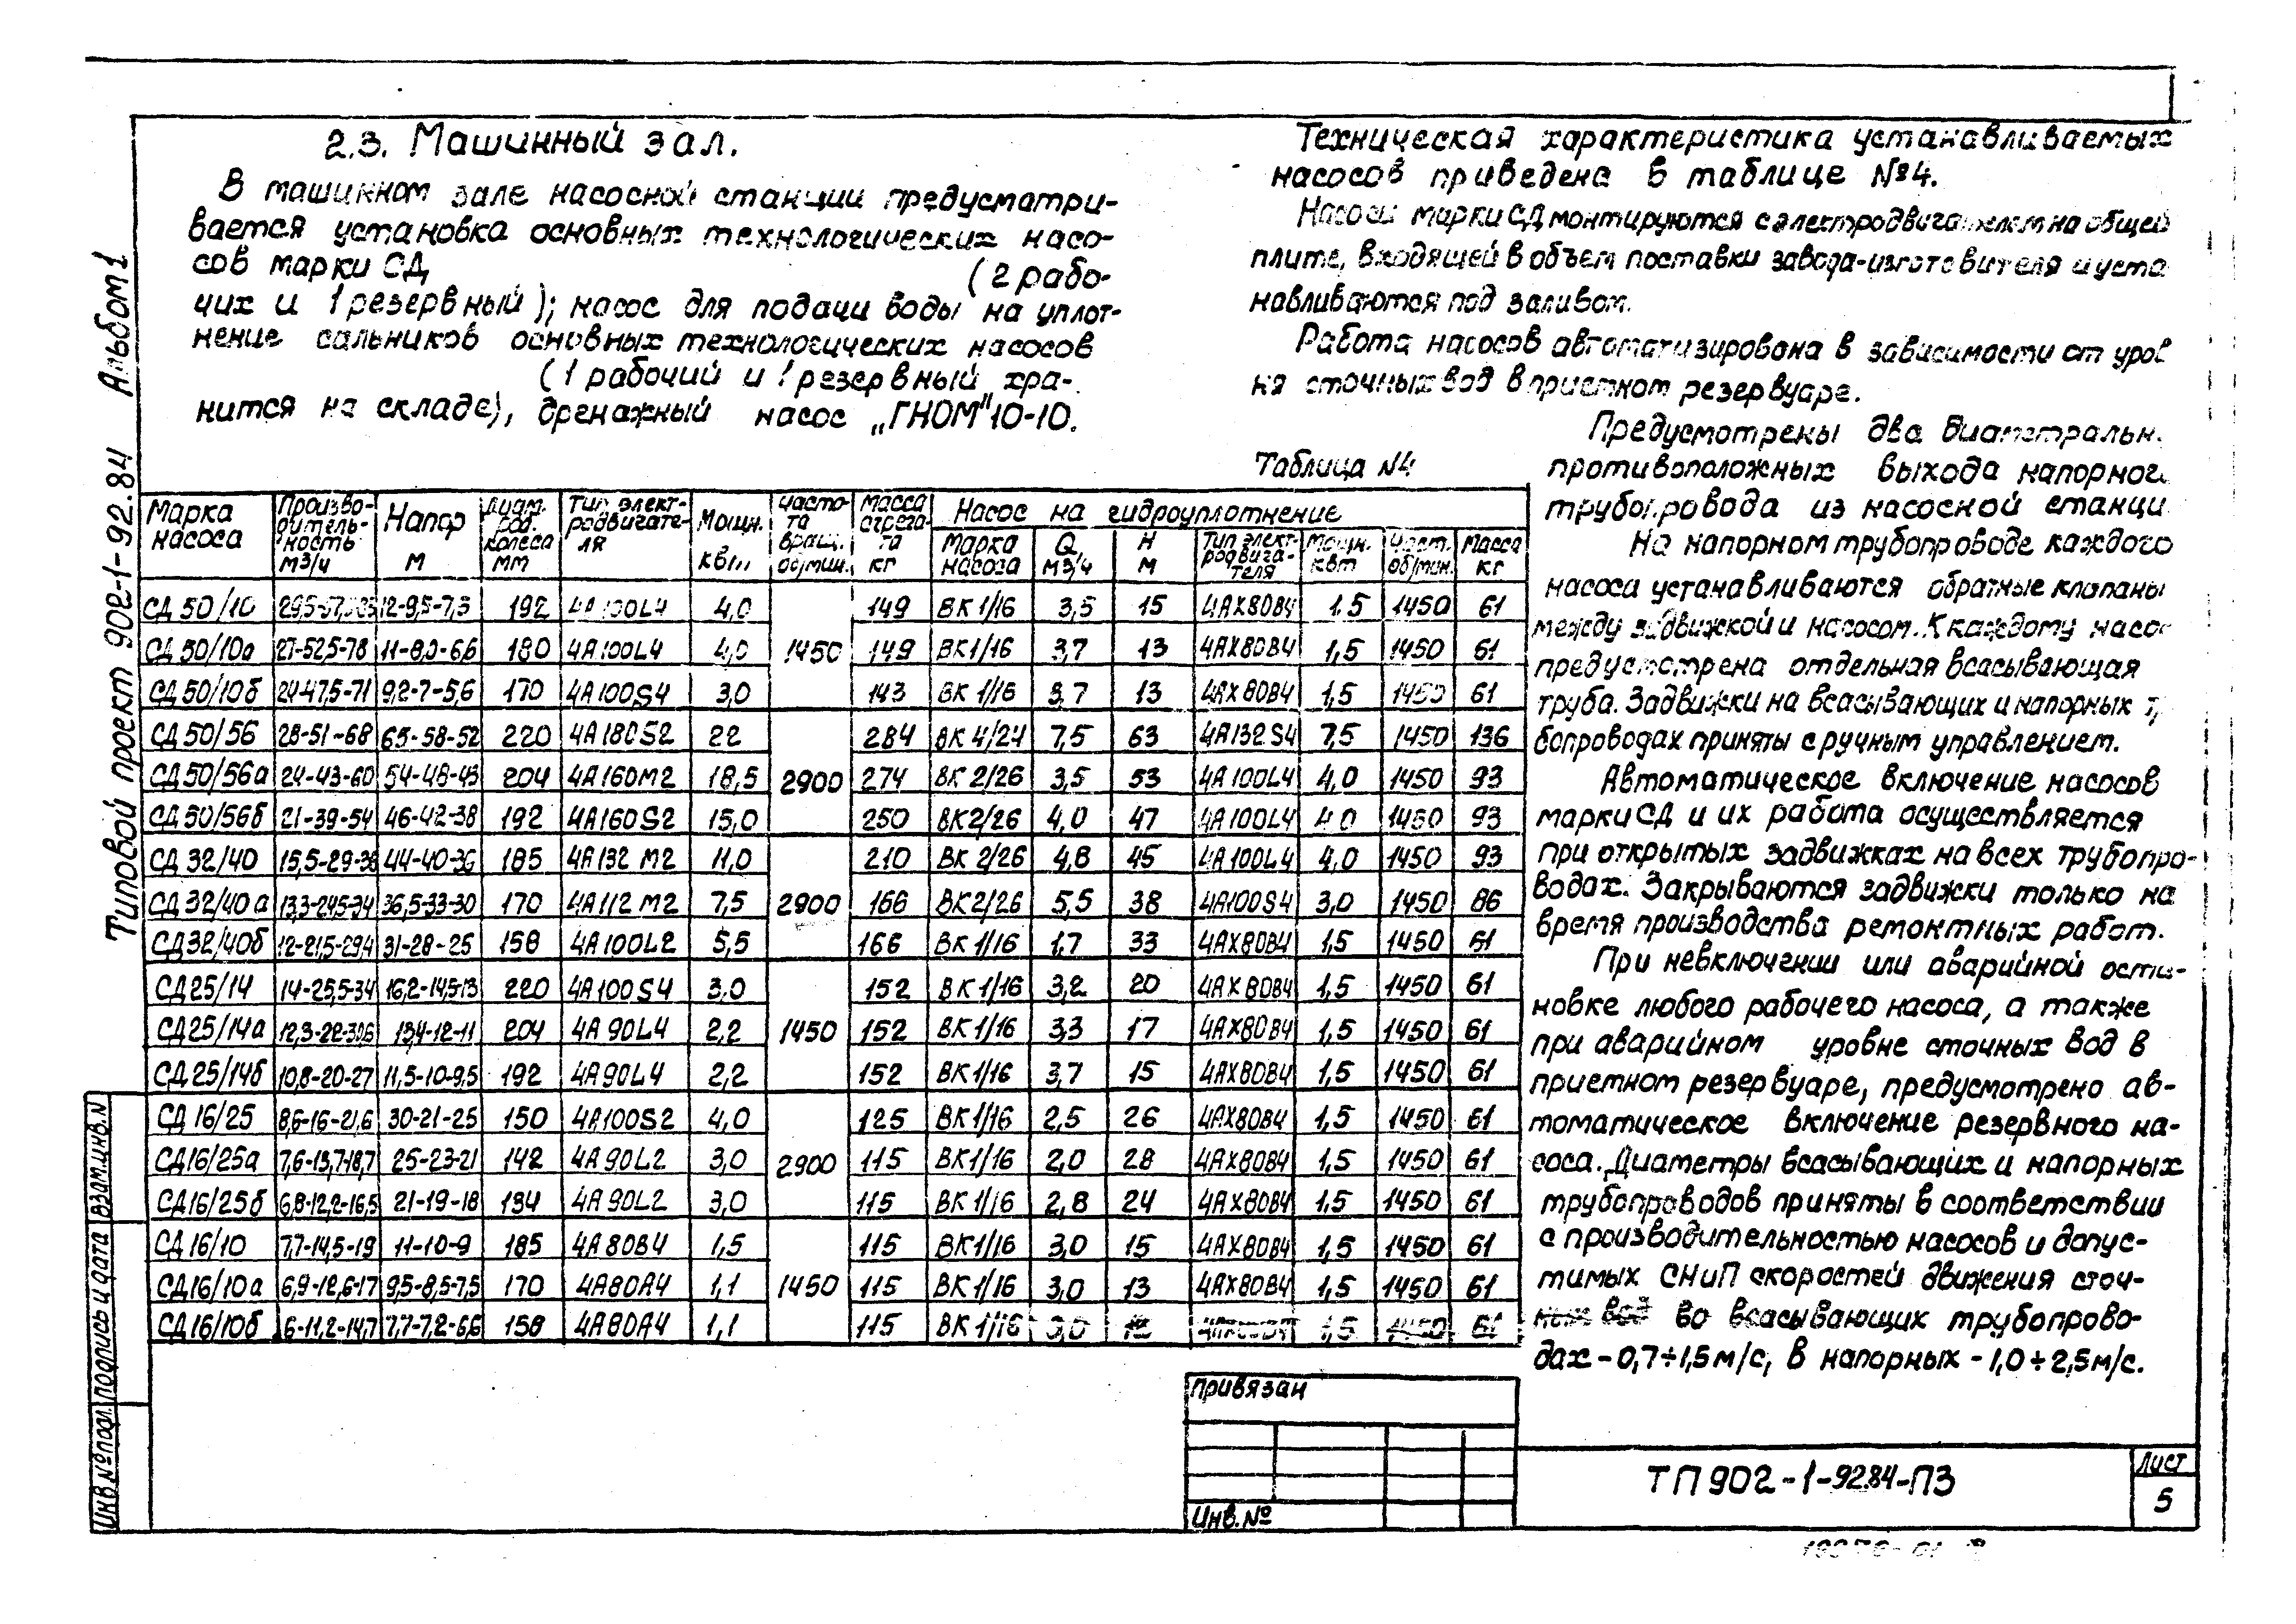 2.3. Машинный зал.
В машинном зале насосной станции предусматри-
вается установка основных технологических насо-
сов марки СД (2 рабо-
чих и 1 резервный); насос для подачи воды на уплот-
нение сальников основных технологических насосов
(1 рабочий и 1 резервный хра-
нится на складе), дренажный насос „ГНОМ" 10-10.
Техническая характеристика устанавливаемых
насосов приведена в таблице №4.
Насосы марки СД монтируются с электродвигателем на общей
плите, входящей в объем поставки завода-изготовителя и уста
навливаются под заливом.
Работа насосов автоматизирована в зависимости от уров
ня сточных вод в приемном резервуаре.
Предусмотрены два диаметральн.
противоположных выхода напорног.
трубопровода из насосной станци
На напорном трубопроводе каждого
насоса устанавливаются обратные клапаны
между задвижкой и насосом. К каждому насос
предусмотрена отдельная всасывающая
труба. Задвижки на всасывающих и напорных т,
бопроводах приняты с ручным управлением.
Автоматическое включение насосов
марки СД и их работа осуществляется
при открытых задвижках на всех трубопро-
водах. Закрываются задвижки только на
время производства ремонтных работ.
При невключении или аварийной оста-
новке любого рабочего насоса, а также
при аварийном уровне сточных вод в
приемном резервуаре, предусмотрено ав-
томатическое включение резервного на-
соса. Диаметры всасывающих и напорных
трубопроводов приняты в соответствии
с производительностью насосов и допус-
тимых СНиП скоростей движения сточ-
ных вод во всасывающих трубопрово-
дах - 0,7÷1,5 м/с, в напорных - 1,0÷2,5 м/с.
Таблица №4
Марка насоса | Произво-дитель-ность м3/ч | Напор м | Диам. раб. колеса мм | Тип элект-родвигате-ля | Мощн. квт | Часто-та вращ. об/мин. | Масса агрега-та кг | Насос на гидроуплотнение
Марка насоса | Q м3/ч | Н м | Тип элект-родвига-теля | Мощн. квт | Част. об/мин. | Масса кг
СД 50/10 12-9,5-7,3 192 4А100L4 4,0 149 ВК 1/16 3,5 15 4АХ80В4 1,5 1450 61
СД 50/10а 27-52,5-78 11-8,0-6,6 180 4А100L4 4,0 1450 149 ВК 1/16 3,7 13 4АХ80В4 1,5 1450 61
СД 50/10б 24-47,5-71 9,2-7-5,6 170 4А100S4 3,0 143 ВК 1/16 3,7 13 4АХ80В4 1,5 1450 61
СД 50/56 28-51-68 65-58-52 220 4А180S2 22 284 ВК 4/24 7,5 63 4А132S4 7,5 1450 136
СД 50/56а 24-43-60 54-48-43 204 4А160М2 18,5 2900 274 ВК 2/26 3,5 53 4А100L4 4,0 1450 93
СД 50/56б 21-39-54 46-42-38 192 4А160S2 15,0 250 ВК 2/26 4,0 47 4А100L4 4,0 1450 93
СД 32/40 15,5-29-38 44-40-36 185 4А132 М2 11,0 210 ВК 2/26 4,8 45 4А100L4 4,0 1450 93
СД 32/40 а 13,3-24,5-34 36,5-33-30 170 4А112 М2 7,5 2900 166 ВК 2/26 5,5 38 4А100S4 3,0 1450 86
СД 32/40б 12-21,5-29,4 31-28-25 158 4А100L2 5,5 166 ВК 1/16 1,7 33 4АХ80В4 1,5 1450 61
СД 25/14 14-25,5-34 16,2-14,5-13 220 4А100S4 3,0 152 ВК 1/16 3,2 20 4АХ80В4 1,5 1450 61
СД 25/14а 12,3-22-30,6 13,4-12-11 204 4А 90L4 2,2 1450 152 ВК 1/16 3,3 17 4АХ80В4 1,5 1450 61
СД 25/14б 10,8-20-27 11,5-10-9,5 192 4А 90L4 2,2 152 ВК 1/16 3,7 15 4АХ80В4 1,5 1450 61
СД 16/25 8,6-16-21,6 30-21-25 150 4А100S2 4,0 125 ВК 1/16 2,5 26 4АХ80В4 1,5 1450 61
СД 16/25а 7,6-13,7-18,7 25-23-21 142 4А 90L2 3,0 2900 115 ВК 1/16 2,0 28 4АХ80В4 1,5 1450 61
СД 16/25б 6,8-12,2-16,5 21-19-18 134 4А 90L2 3,0 115 ВК 1/16 2,8 24 4АХ80В4 1,5 1450 61
СД 16/10 7,7-14,5-19 11-10-9 185 4А 80В4 1,5 115 ВК 1/16 3,0 15 4АХ80В4 1,5 1450 61
СД 16/10а 6,9-12,6-17 9,5-8,5-7,5 170 4А80А4 1,1 1450 115 ВК 1/16 3,0 13 4АХ80В4 1,5 1450 61
СД 16/10б 6-11,2-14,7 7,7-7,2-6,6 158 4А80А4 1,1 115 ВК 1/16 3,0 1,5 1450 61
Привязан
Инв. №
ТП 902-1-92.84-ПЗ
Лист
5
Типовой проект 902-1-92.84 Альбом 1
Взам. инв. N
Подпись и дата
Инв. № подл.